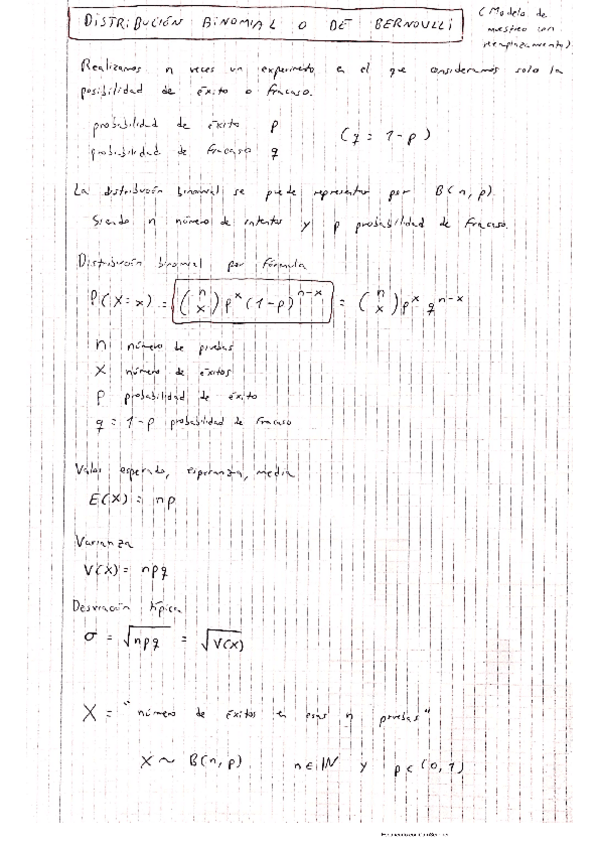 DISTRIBUCIÓN BINOMIAL O DE BERNOULLI
(Modelo de
muestreo con
reemplazamiento)
Realizamos n veces un experimento en el que consideramos solo la
posibilidad de éxito o fracaso.
probabilidad de éxito p
(q = 1-p)
probabilidad de fracaso q
La distribución binomial se puede representar por B(n,p).
Siendo n número de intentos y p probabilidad de fracaso.
Distribución binomial por fórmula
P(X=x) = (n x) p^x (1-p)^n-x = (n x) p^x q^n-x
n número de pruebas
X número de éxitos
p probabilidad de éxito
q = 1-p probabilidad de fracaso
Valor esperado, esperanza, media
E(X) = np
Varianza
V(X) = npq
Desviación típica
σ = √npq = √V(X)
X = "número de éxitos en esas n pruebas"
X ~ B(n,p) n∈ℕ y p∈(0,1)